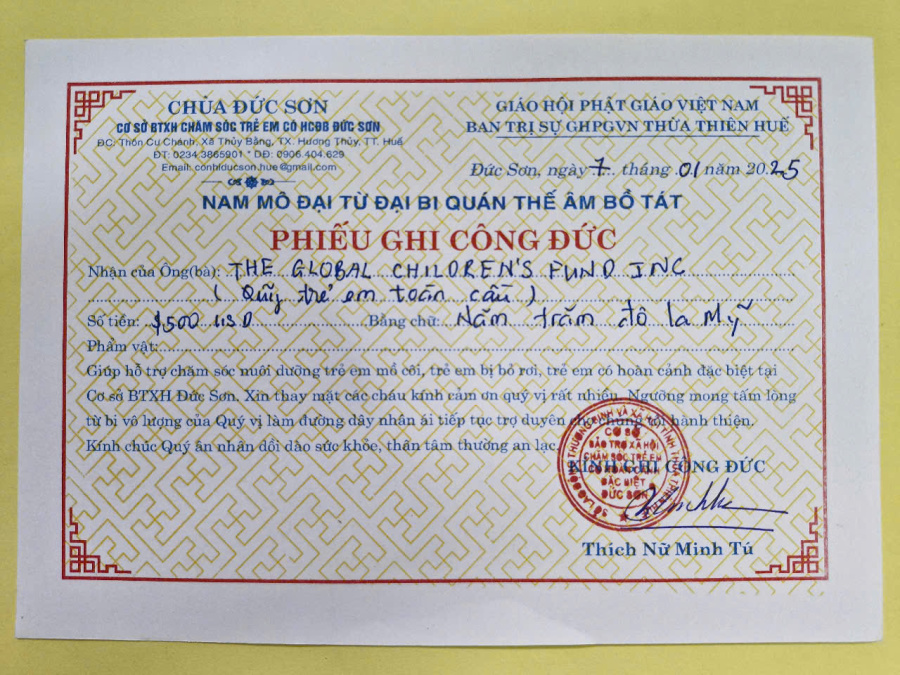 CHÙA ĐỨC SƠN
CƠ SỞ BTXH CHĂM SÓC TRẺ EM CÓ HCĐB ĐỨC SƠN
ĐC: Thôn Cư Chánh, Xã Thủy Bằng, TX. Hương Thủy, TT. Huế
ĐT: 0234 3865901 * DĐ: 0906.404.629
Email: conhiducson.hue@gmail.com
GIÁO HỘI PHẬT GIÁO VIỆT NAM
BAN TRỊ SỰ GHPGVN THỪA THIÊN HUẾ
Đức Sơn, ngày 7 tháng 01 năm 2025
NAM MÔ ĐẠI TỪ ĐẠI BI QUÁN THẾ ÂM BỒ TÁT
PHIẾU GHI CÔNG ĐỨC
Nhận của Ông(bà): THE GLOBAL CHILDREN'S FUND INC
( Quỹ trẻ em toàn cầu )
Số tiền: $500 USD Bằng chữ: Năm trăm đô la Mỹ
Phẩm vật:
Giúp hỗ trợ chăm sóc nuôi dưỡng trẻ em mồ côi, trẻ em bị bỏ rơi, trẻ em có hoàn cảnh đặc biệt tại
Cơ sở BTXH Đức Sơn. Xin thay mặt các cháu kính cảm ơn quý vị rất nhiều. Ngưỡng mong tấm lòng
từ bi vô lượng của Quý vị làm đường dây nhân ái tiếp tục trợ duyên cho chúng tôi hành thiện.
Kính chúc Quý ân nhân dồi dào sức khỏe, thân tâm thường an lạc.
KÍNH GHI CÔNG ĐỨC
CƠ SỞ
BẢO TRỢ XÃ HỘI
CHĂM SÓC TRẺ EM
CÓ HOÀN CẢNH
ĐẶC BIỆT
ĐỨC SƠN
Thích Nữ Minh Tú